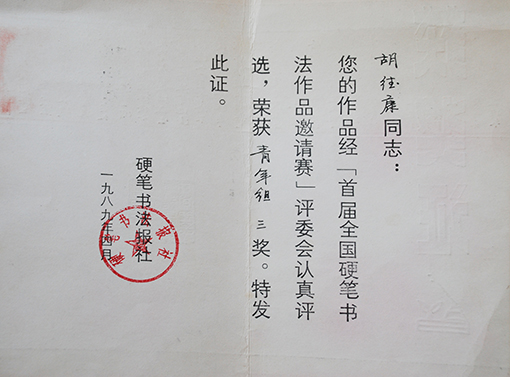 胡经康同志：
您的作品经「首届全国硬笔书
法作品邀请赛」评委会认真评
选，荣获青年组三奖。特发
此证。
硬笔书法报社
一九八九年四月
硬笔书法报社